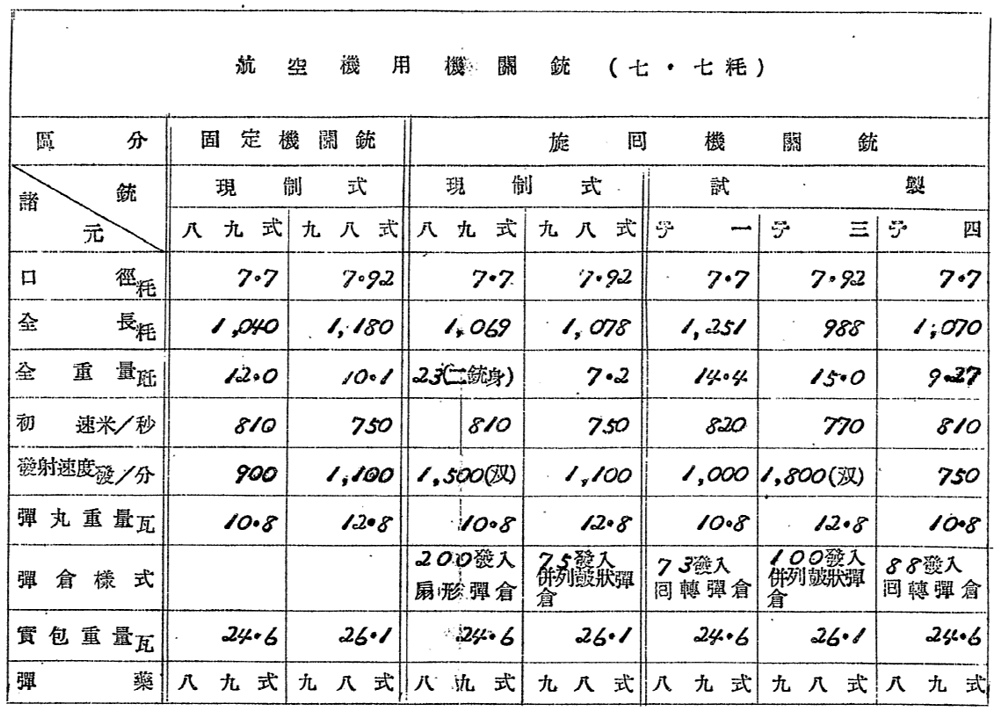 航空機用機關銃(七・七粍)
區分 固定機關銃 旋回機關銃
諸元 銃 現制式 現制式 試製
八九式 九八式 八九式 九八式 テ一 テ三 テ四
口徑粍 7.7 7.92 7.7 7.92 7.7 7.92 7.7
全長粍 1,040 1,180 1,069 1,078 1,251 988 1,070
全重量瓩 12.0 10.1 23(二銃身) 7.2 14.4 15.0 9.27
初速米/秒 810 750 810 750 820 770 810
發射速度發/分 900 1,100 1,500(双) 1,100 1,000 1,800(双) 750
彈丸重量瓦 10.8 12.8 10.8 12.8 10.8 12.8 10.8
彈倉様式 200發入扇形彈倉 75發入併列皷狀彈倉 73發入回轉彈倉 100發入併列皷狀彈倉 88發入回轉彈倉
實包重量瓦 24.6 26.1 24.6 26.1 24.6 26.1 24.6
彈藥 八九式 九八式 八九式 九八式 八九式 九八式 八九式